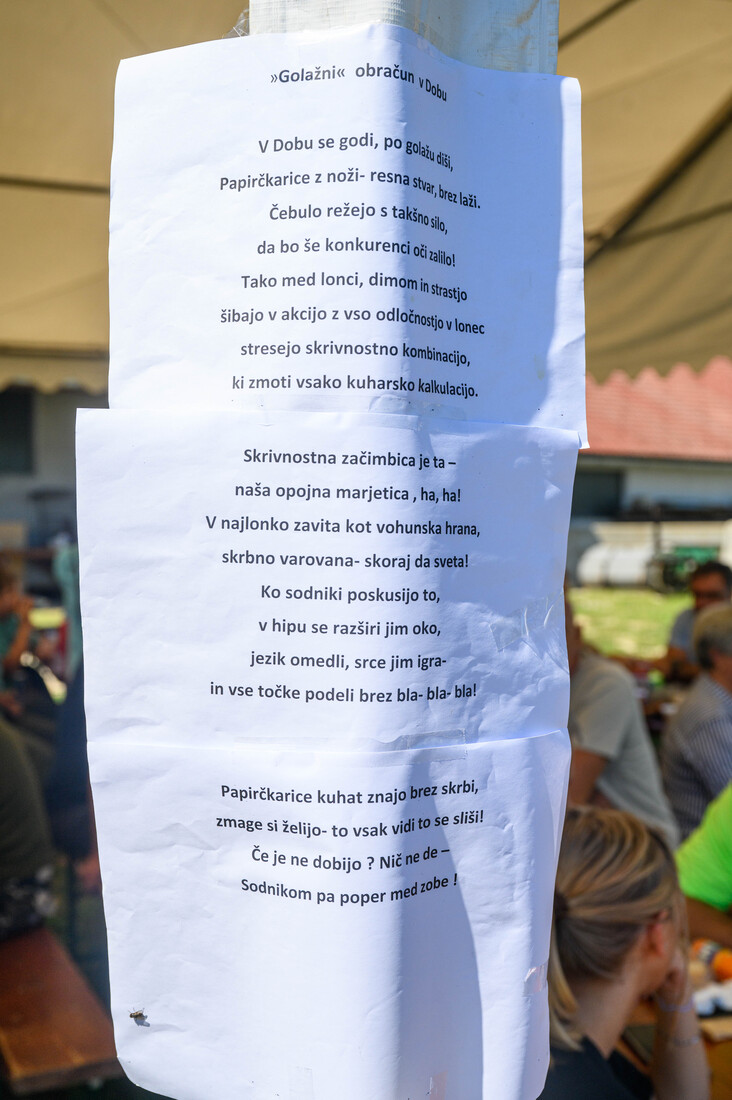 »Golažni« obračun v Dobu
V Dobu se godi, po golažu diši,
Papirčkarice z noži- resna stvar, brez laži.
Čebulo režejo s takšno silo,
da bo še konkurenci oči zalilo!
Tako med lonci, dimom in strastjo
šibajo v akcijo z vso odločnostjo v lonec
stresejo skrivnostno kombinacijo,
ki zmoti vsako kuharsko kalkulacijo.
Skrivnostna začimbica je ta –
naša opojna marjetica , ha, ha!
V najlonko zavita kot vohunska hrana,
skrbno varovana- skoraj da sveta!
Ko sodniki poskusijo to,
v hipu se razširi jim oko,
jezik omedli, srce jim igra-
in vse točke podeli brez bla- bla- bla!
Papirčkarice kuhat znajo brez skrbi,
zmage si želijo- to vsak vidi to se sliši!
Če je ne dobijo ? Nič ne de –
Sodnikom pa poper med zobe !